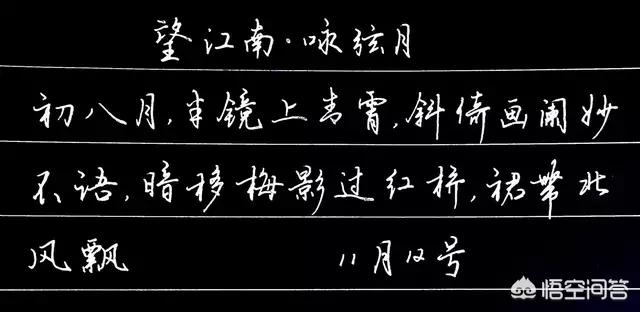 望江南·咏弦月
初八月,半镜上青霄,斜倚画阑妙
不语,暗移梅影过红桥,裙带北
风飘 11月12号
悟空问答